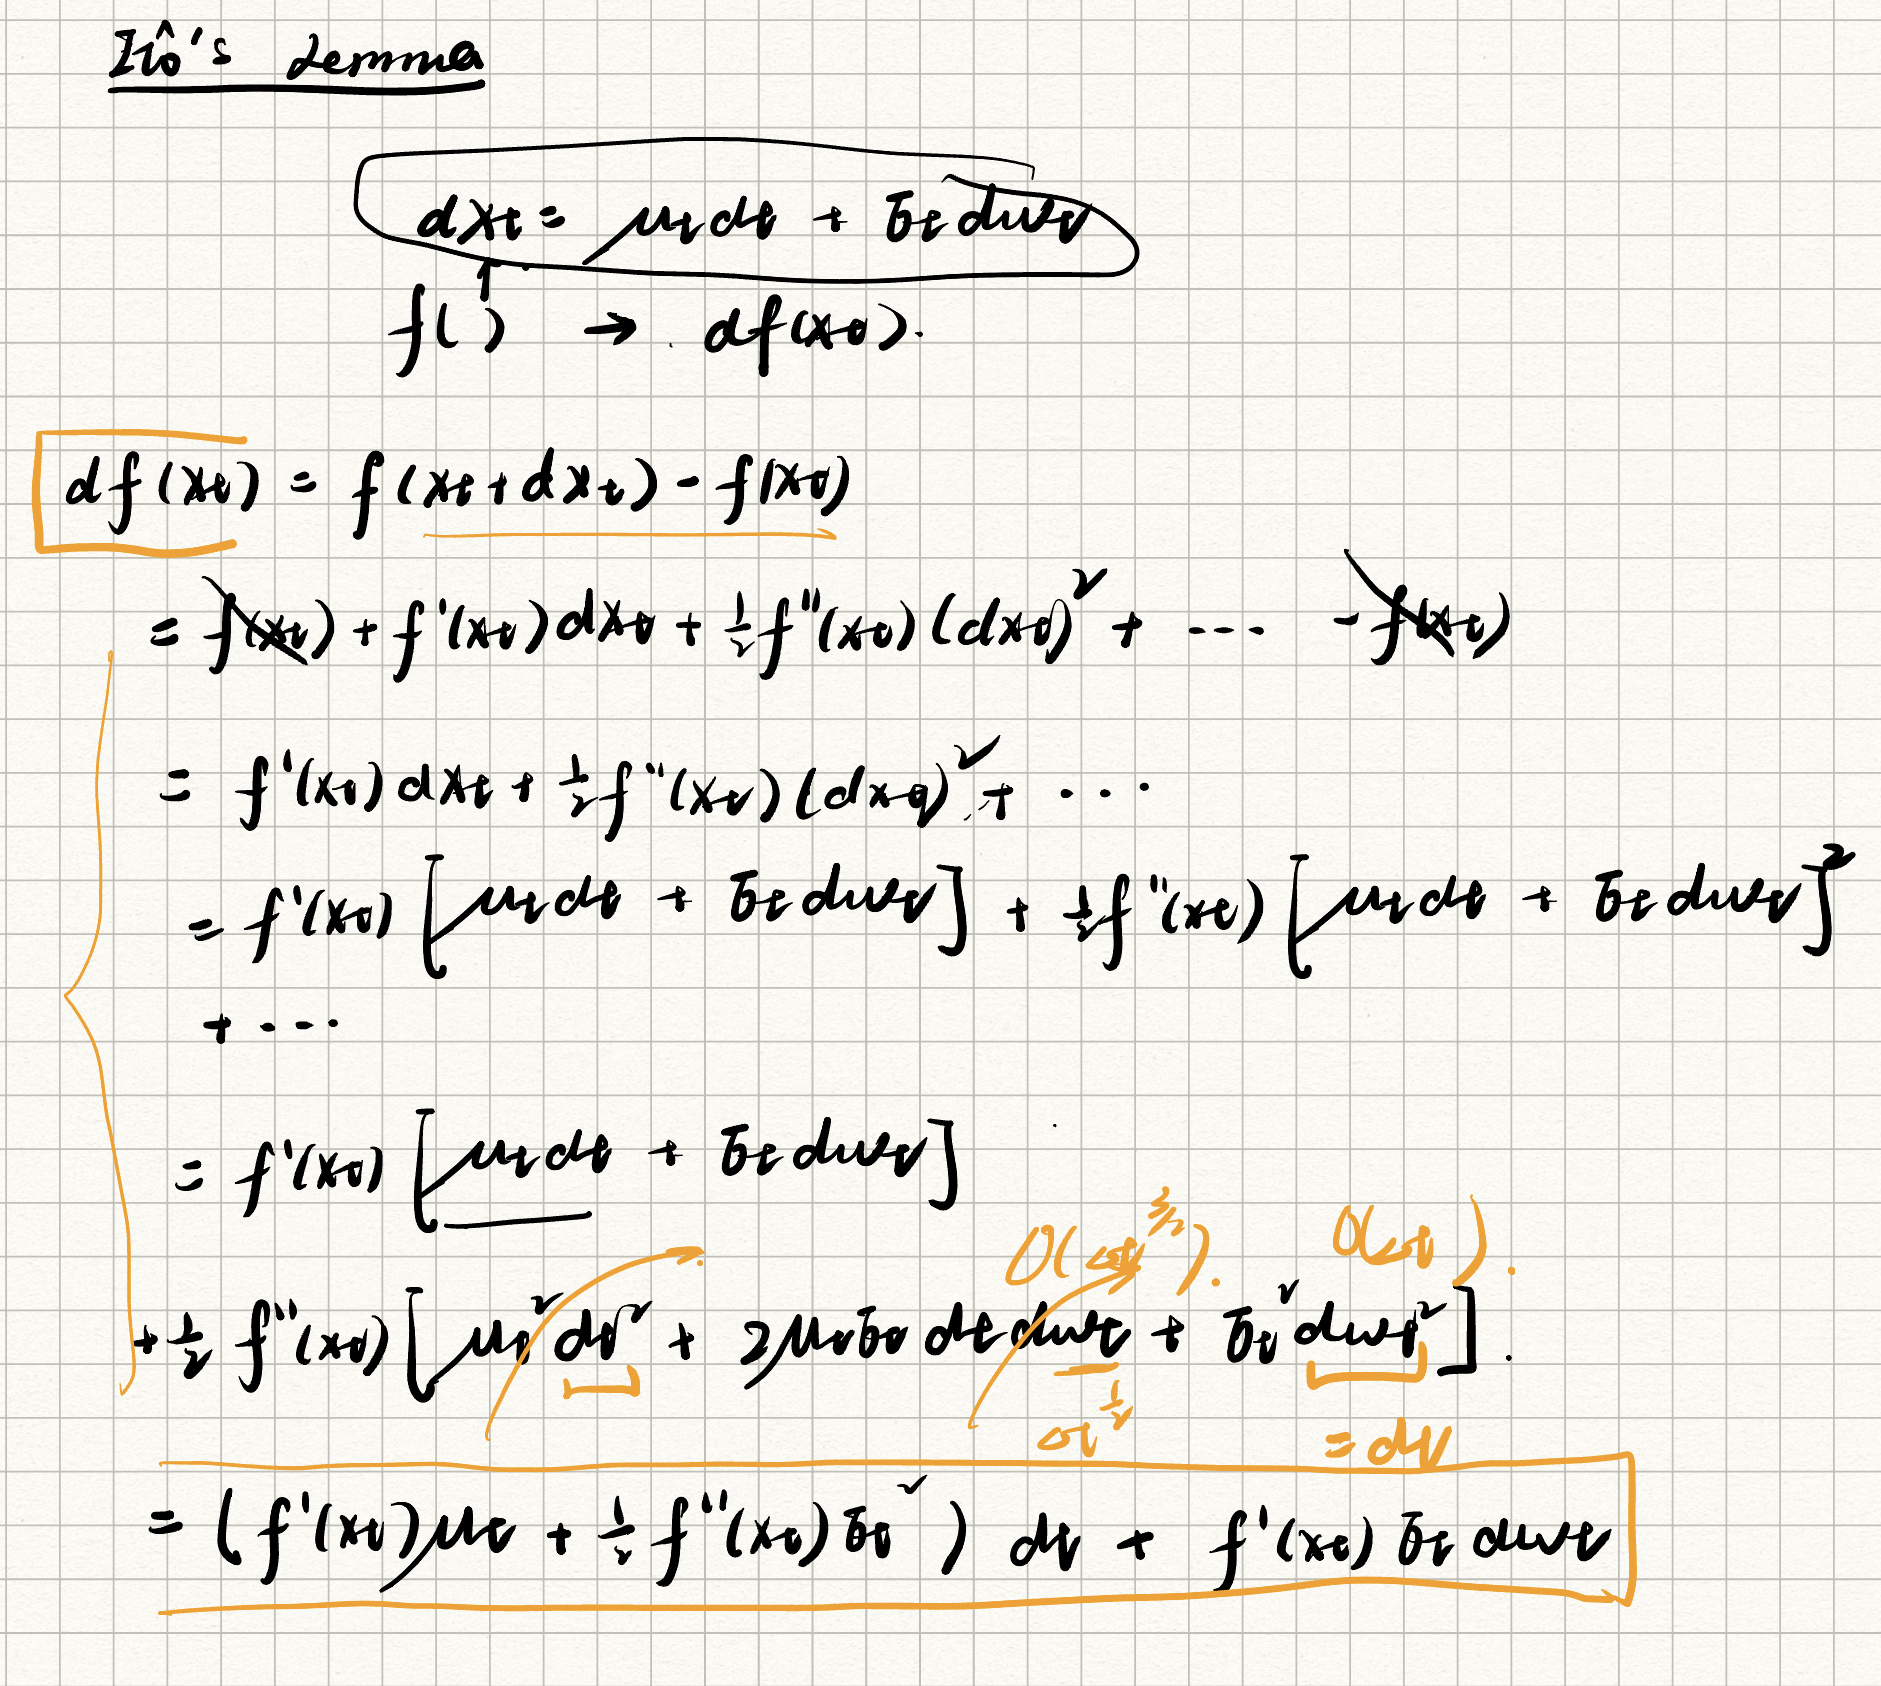 Itô's Lemma
dXt = μt dt + σt dwt
f( ) → df(Xt).
df(Xt) = f(Xt + dXt) - f(Xt)
= f(Xt) + f'(Xt) dXt + 1/2 f''(Xt) (dXt)² + --- - f(Xt)
= f'(Xt) dXt + 1/2 f''(Xt) (dXt)² + ...
= f'(Xt) [μt dt + σt dwt] + 1/2 f''(Xt) [μt dt + σt dwt]²
+ ---
= f'(Xt) [μt dt + σt dwt]
O(Δt^3/2). O(Δt).
+ 1/2 f''(Xt) [μt² dt² + 2μtσt dt dwt + σt² dwt²].
Δt^1/2 = dt
= (f'(Xt)μt + 1/2 f''(Xt)σt²) dt + f'(Xt) σt dwt